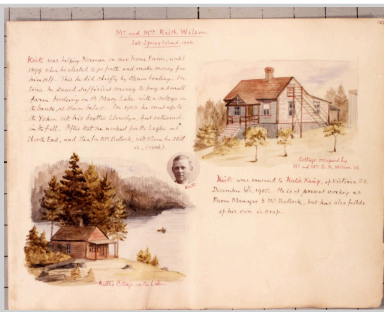 Mr and Mrs Keith Wilson
Salt Spring Island, 1906
Keith was helping Norman on our Home Farm, until
1899 when he elected to go forth and make money for
himself. This he did chiefly by steam boating. In
time he saved sufficient money to buy a small
farm bordering on St Mary Lake with a cottage on
its banks, as shown below. In 1902 he went up to
the Yukon with his brother Llewelyn, but returned
in the fall. After that he worked for the
North End, and then for Mr Bullock, with whom he still
is, (1906).
Cottage occupied by
Mr and Mrs K. Wilson
Keith was married to King, of Victoria, B.C.
December 6th, 1905. He is at present working as
Farm Manager to Mr Bullock, but has also fields
of his own in crop.
Keith's Cottage on the Lake